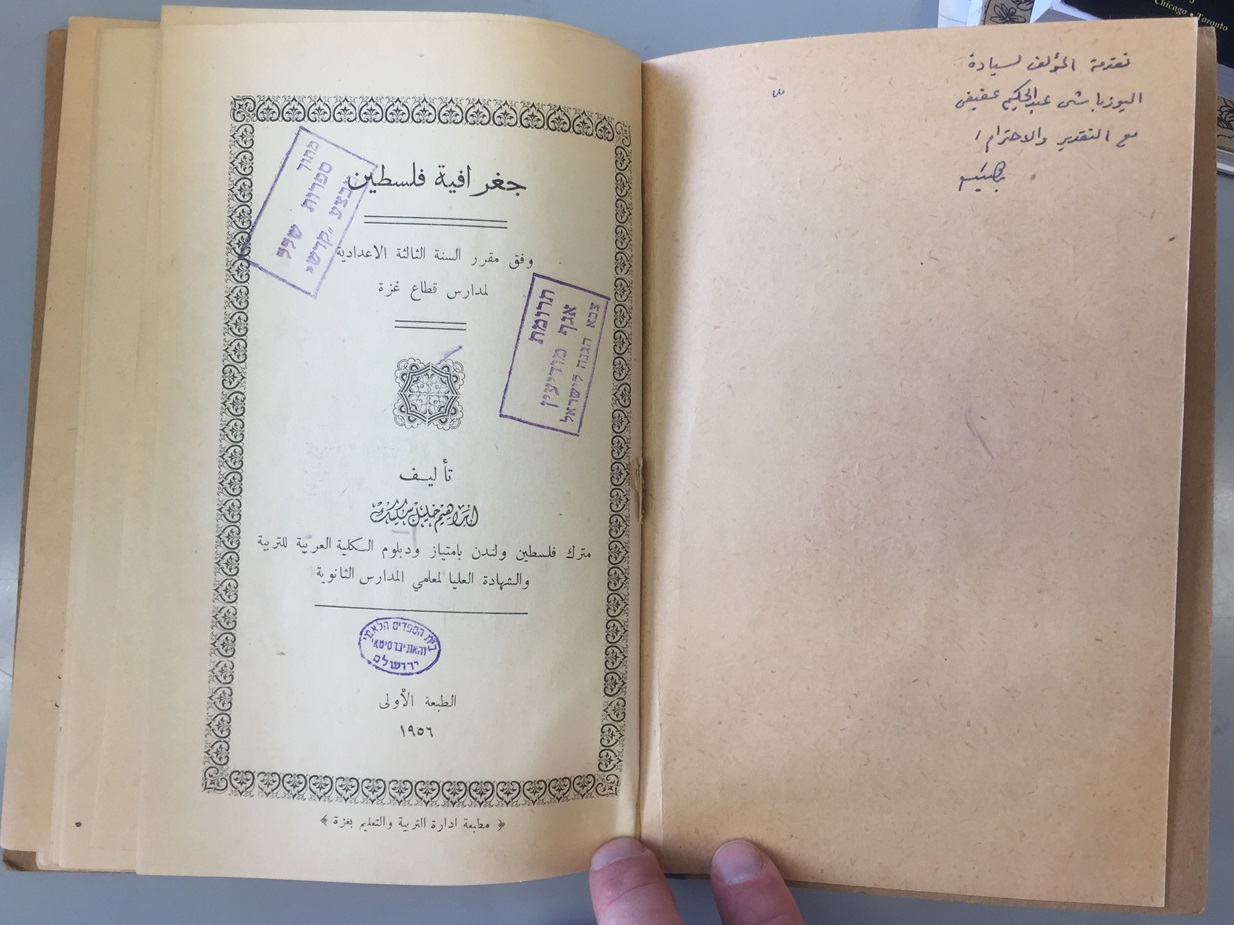 تقدمة المؤلف لسيادة
اليوزباشي عبدالحكيم عفيفي
مع التقدير والاحترام /
جغرافية فلسطين
وفق مقرر السنة الثالثة الاعدادية
لمدارس قطاع غزة
תרומת
אגף מודיעין
צבא הגנה לישראל
מתוך
ספרות שלל
מבצע "קדש"
تأليف
ابراهيم خليل سكيك
مترك فلسطين ولندن بامتياز ودبلوم الكلية العربية للتربية
والشهادة العليا لمعلمي المدارس الثانوية
בית הספרים הלאמי
והאוניברסיטאי
ירושלם
الطبعة الأولى
١٩٥٦
مطبعة ادارة التربية والتعليم بغزة
Chicago • Toronto